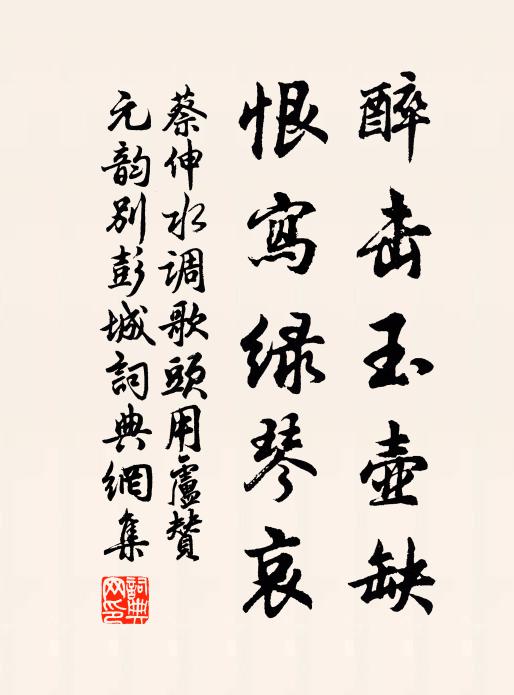 醉击玉壶缺
恨写绿琴哀
蔡伸水调歌头用卢赞
元韵别彭城词典网集
詞典网印